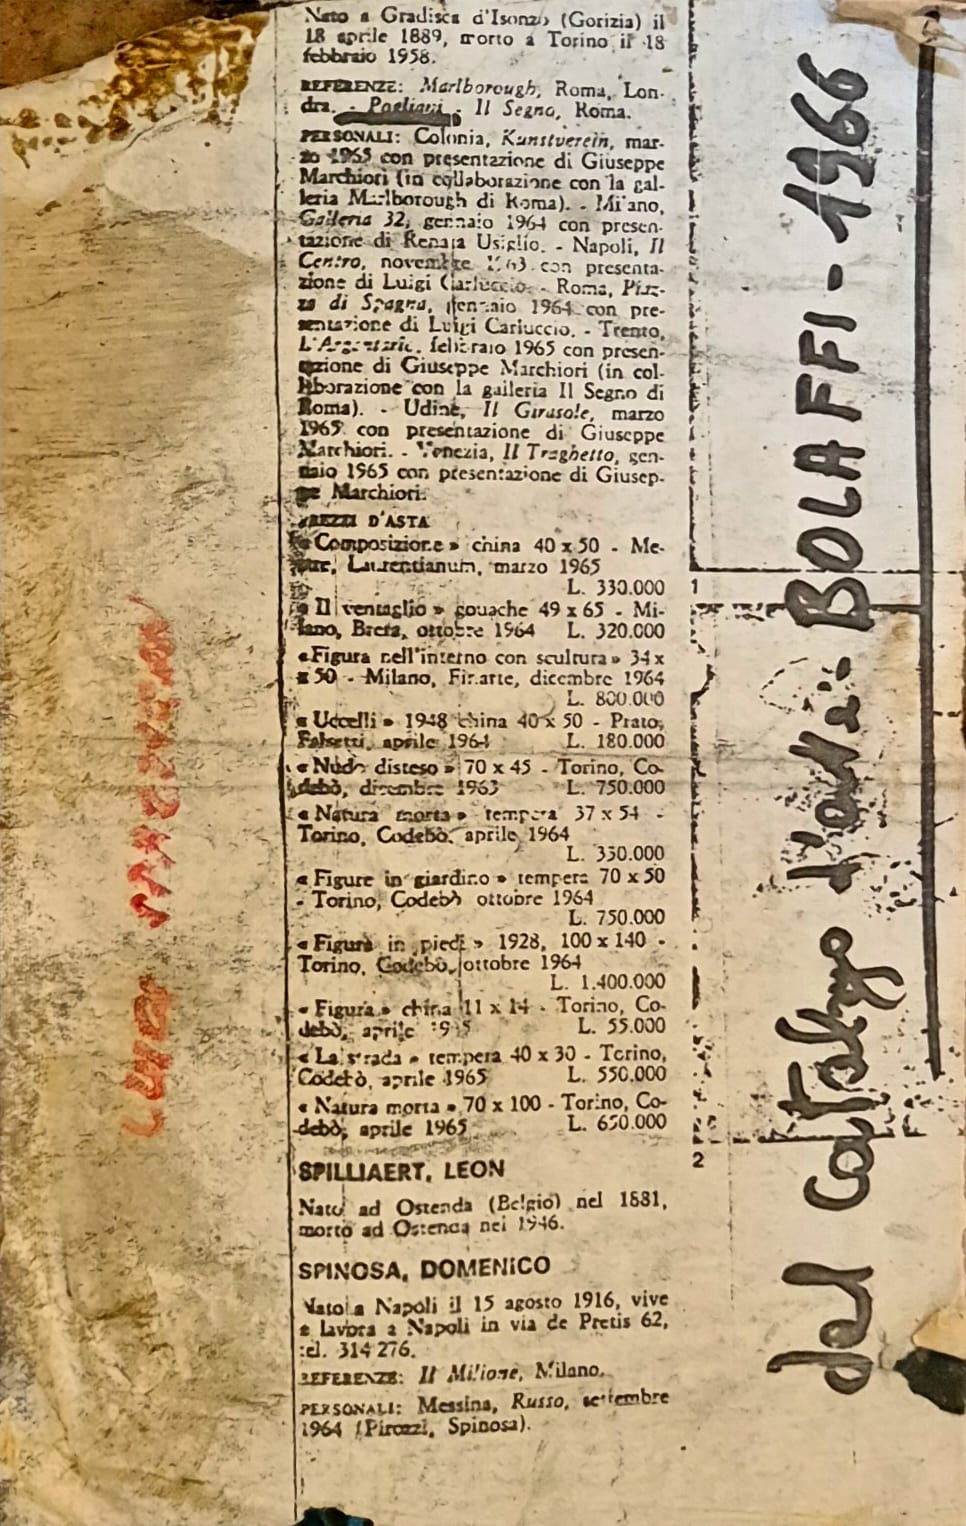 Nato a Gradisca d'Isonzo (Gorizia) il
18 aprile 1889, morto a Torino il 18
febbraio 1958.
REFERENZE: Marlborough, Roma, Lon-
dra. - Pogliani - Il Segno, Roma.
PERSONALI: Colonia, Kunstverein, mar-
zo 1965 con presentazione di Giuseppe
Marchiori (in collaborazione con la gal-
leria Marlborough di Roma). - Milano,
Galleria 32, gennaio 1964 con presen-
tazione di Renata Usiglio. - Napoli, Il
Centro, novembre 1963 con presenta-
zione di Luigi Carluccio. - Roma, Piaz-
za di Spagna, gennaio 1964 con pre-
sentazione di Luigi Carluccio. - Trento,
L'Argentario, febbraio 1965 con presen-
tazione di Giuseppe Marchiori (in col-
laborazione con la galleria Il Segno di
Roma). - Udine, Il Girasole, marzo
1965 con presentazione di Giuseppe
Marchiori. - Venezia, Il Traghetto, gen-
naio 1965 con presentazione di Giusep-
pe Marchiori.
PREZZI D'ASTA
« Composizione » china 40 x 50 - Me-
Laurentianum, marzo 1965
L. 330.000
« Il ventaglio » gouache 49 x 65 - Mi-
lano, Brera, ottobre 1964 L. 320.000
«Figura nell'interno con scultura» 34 x
x 50 - Milano, Finarte, dicembre 1964
L. 800.000
« Uccelli » 1948 china 40 x 50 - Prato,
Falsetti, aprile 1964 L. 180.000
« Nudo disteso » 70 x 45 - Torino, Co-
debò, dicembre 1963 L. 750.000
« Natura morta » tempera 37 x 54 -
Torino, Codebò, aprile 1964
L. 350.000
« Figure in giardino » tempera 70 x 50
- Torino, Codebò ottobre 1964
L. 750.000
« Figura in piedi » 1928, 100 x 140 -
Torino, Codebò, ottobre 1964
L. 1.400.000
« Figura » china 11 x 14 - Torino, Co-
debò, aprile 1965 L. 55.000
« La strada » tempera 40 x 30 - Torino,
Codebò, aprile 1965 L. 550.000
« Natura morta » 70 x 100 - Torino, Co-
debò, aprile 1965 L. 650.000
SPILLIAERT, LEON
Nato ad Ostenda (Belgio) nel 1881,
morto ad Ostenda nel 1946.
SPINOSA, DOMENICO
Nato a Napoli il 15 agosto 1916, vive
e lavora a Napoli in via de Pretis 62,
tel. 314 276.
REFERENZE: Il Milione, Milano.
PERSONALI: Messina, Russo, settembre
1964 (Pirozzi, Spinosa).
1
2
dal Catalogo d'Arte - BOLAFFI - 1966